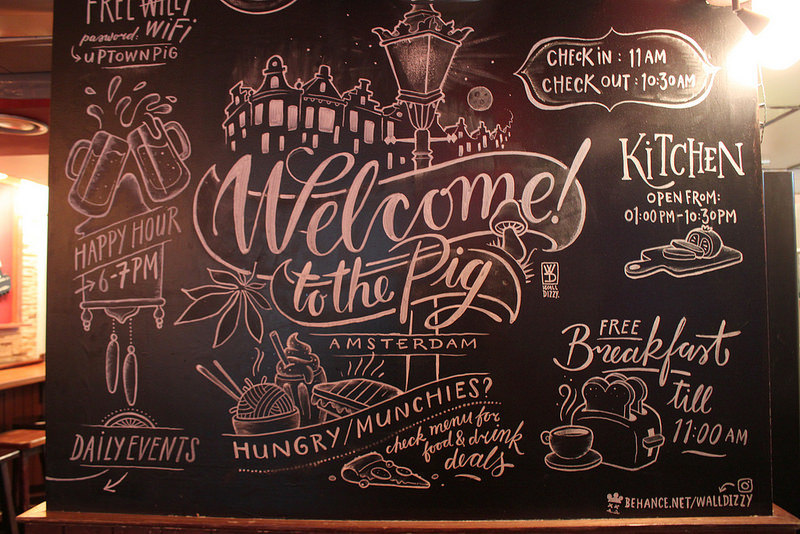 FREE WIFI
password: WiFi
UPTOWNPIG
HAPPY HOUR
6-7PM
DAILY EVENTS
Welcome!
to the Pig
AMSTERDAM
WALL
DIZZY
HUNGRY/MUNCHIES?
check menu for
food & drink
deals
CHECK IN : 11 AM
CHECK OUT : 10:30 AM
KiTCHEN
OPEN FROM:
01:00 PM-10:30PM
FREE
Breakfast
till
11:00 AM
BEHANCE.NET/WALLDIZZY